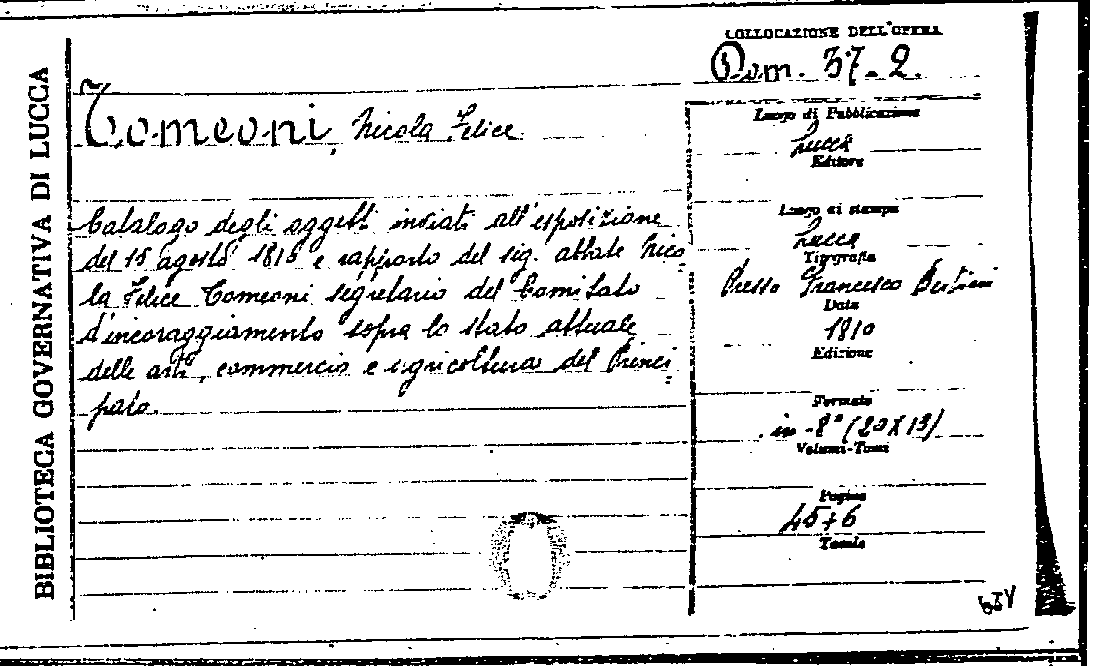 BIBLIOTECA GOVERNATIVA DI LUCCA
COLLOCAZIONE DELL'OPERA
Rom. 37-2.
Tomeoni, Nicola Felice
Catalogo degli oggetti inviati all'esposizione
del 15 agosto 1810 e rapporto del sig. abbate Nico
la Felice Tomeoni segretario del Comitato
d'incoraggiamento sopra lo stato attuale
delle arti, commercio e agricoltura del Princi
pato.
Luogo di Pubblicazione
Lucca
Editore
Luogo di stampa
Lucca
Tipografia
Presso Francesco Bertini
Data
1810
Edizione
Formato
in-8° (20X13)
Volumi-Tomi
Pagine
45+6
Tavole